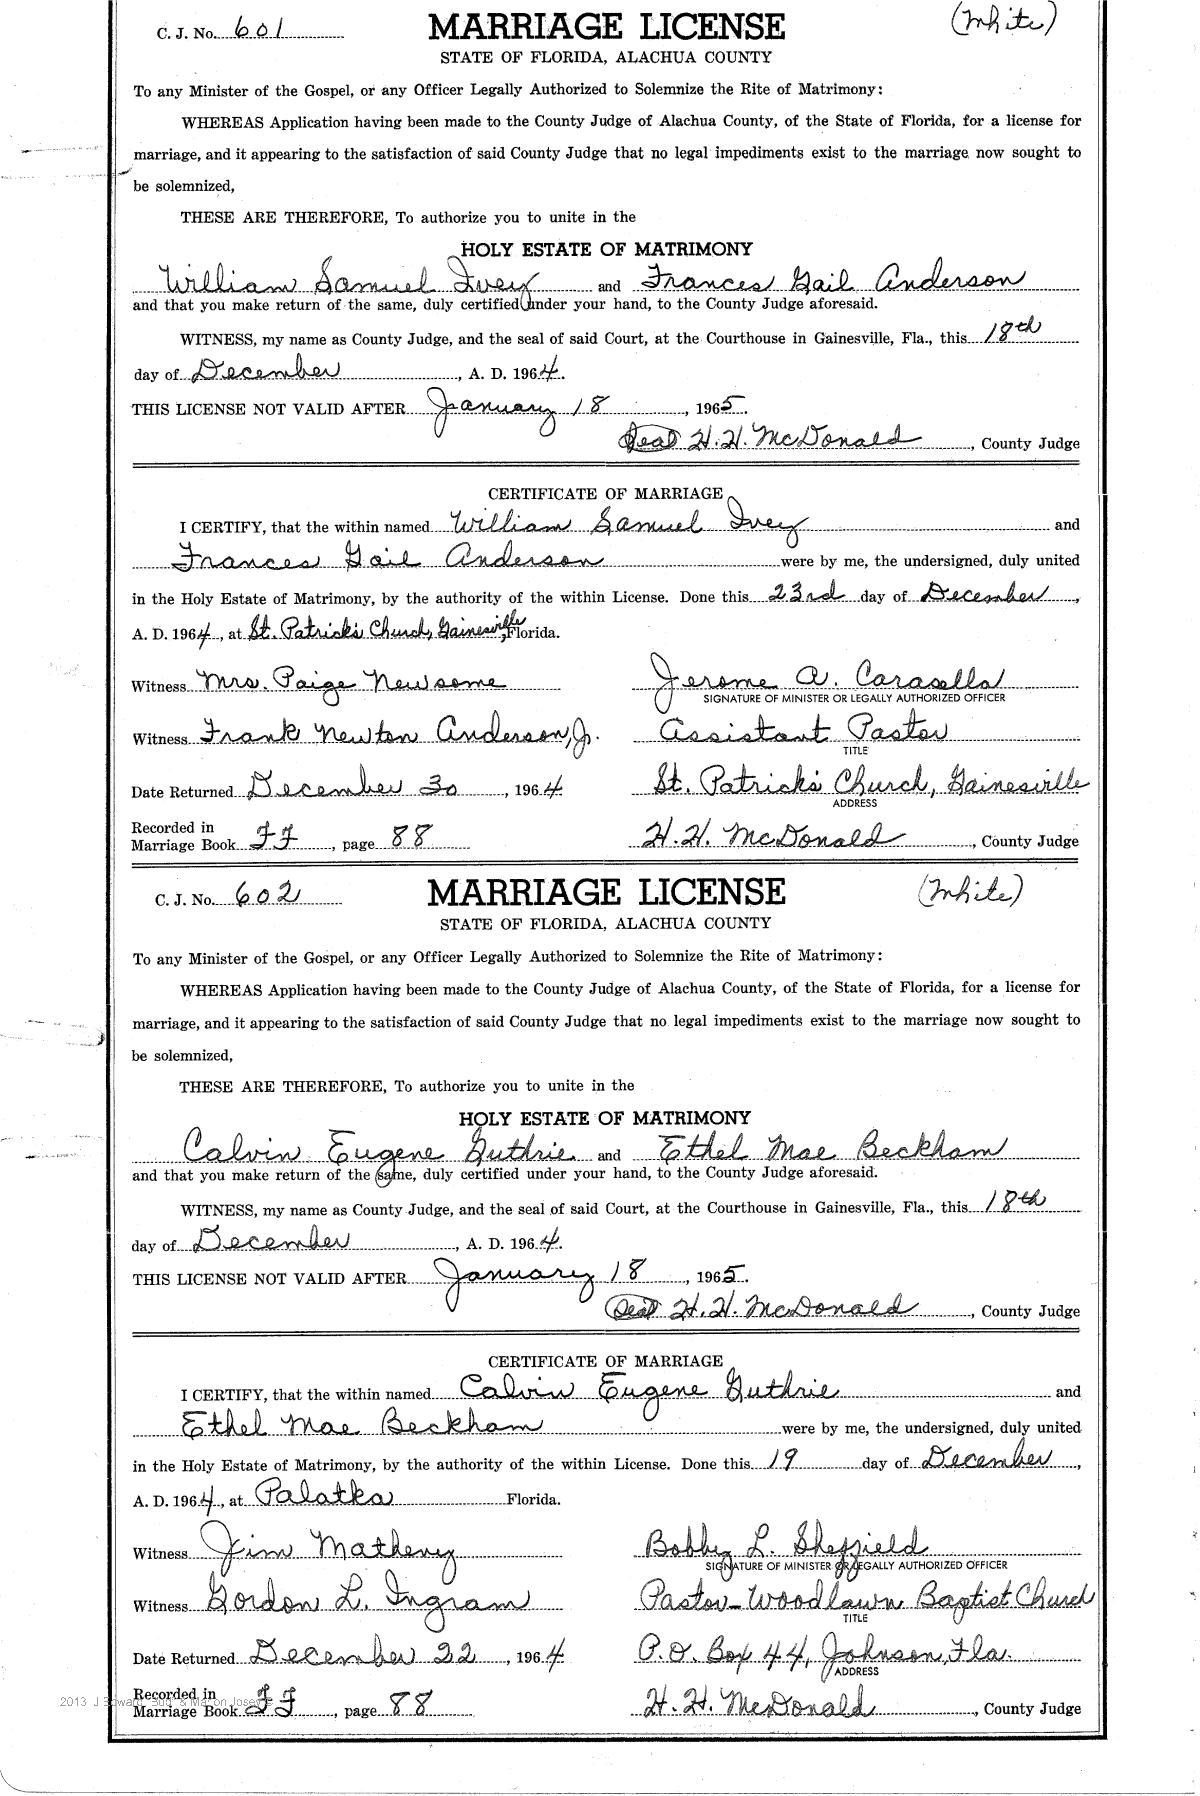 C. J. No. 601 MARRIAGE LICENSE (White)
STATE OF FLORIDA, ALACHUA COUNTY
To any Minister of the Gospel, or any Officer Legally Authorized to Solemnize the Rite of Matrimony:
WHEREAS Application having been made to the County Judge of Alachua County, of the State of Florida, for a license for
marriage, and it appearing to the satisfaction of said County Judge that no legal impediments exist to the marriage now sought to
be solemnized,
THESE ARE THEREFORE, To authorize you to unite in the
HOLY ESTATE OF MATRIMONY
William Samuel Ivey and Frances Gail Anderson
and that you make return of the same, duly certified under your hand, to the County Judge aforesaid.
WITNESS, my name as County Judge, and the seal of said Court, at the Courthouse in Gainesville, Fla., this 18th
day of December, A. D. 1964.
THIS LICENSE NOT VALID AFTER January 18, 1965.
(Seal) H. H. McDonald, County Judge
CERTIFICATE OF MARRIAGE
I CERTIFY, that the within named William Samuel Ivey and
Frances Gail Anderson were by me, the undersigned, duly united
in the Holy Estate of Matrimony, by the authority of the within License. Done this 23rd day of December,
A. D. 1964, at St. Patrick's Church, Gainesville, Florida.
Witness Mrs. Paige Newsome Jerome A. Carosella
SIGNATURE OF MINISTER OR LEGALLY AUTHORIZED OFFICER
Witness Frank Newton Anderson, Jr. Assistant Pastor
TITLE
Date Returned December 30, 1964 St. Patrick's Church, Gainesville
ADDRESS
Recorded in
Marriage Book FF, page 88 H. H. McDonald, County Judge
C. J. No. 602 MARRIAGE LICENSE (White)
STATE OF FLORIDA, ALACHUA COUNTY
To any Minister of the Gospel, or any Officer Legally Authorized to Solemnize the Rite of Matrimony:
WHEREAS Application having been made to the County Judge of Alachua County, of the State of Florida, for a license for
marriage, and it appearing to the satisfaction of said County Judge that no legal impediments exist to the marriage now sought to
be solemnized,
THESE ARE THEREFORE, To authorize you to unite in the
HOLY ESTATE OF MATRIMONY
Calvin Eugene Guthrie and Ethel Mae Beckham
and that you make return of the same, duly certified under your hand, to the County Judge aforesaid.
WITNESS, my name as County Judge, and the seal of said Court, at the Courthouse in Gainesville, Fla., this 18th
day of December, A. D. 1964.
THIS LICENSE NOT VALID AFTER January 18, 1965.
(Seal) H. H. McDonald, County Judge
CERTIFICATE OF MARRIAGE
I CERTIFY, that the within named Calvin Eugene Guthrie and
Ethel Mae Beckham were by me, the undersigned, duly united
in the Holy Estate of Matrimony, by the authority of the within License. Done this 19 day of December,
A. D. 1964, at Palatka Florida.
Witness Jim Matheny Bobby L. Sheffield
SIGNATURE OF MINISTER OR LEGALLY AUTHORIZED OFFICER
Witness Gordon L. Ingram Pastor-Woodlawn Baptist Church
TITLE
Date Returned December 22, 1964 P.O. Box 44, Johnson, Fla.
ADDRESS
Recorded in
Marriage Book FF, page 88 H. H. McDonald, County Judge
2013 J Edward